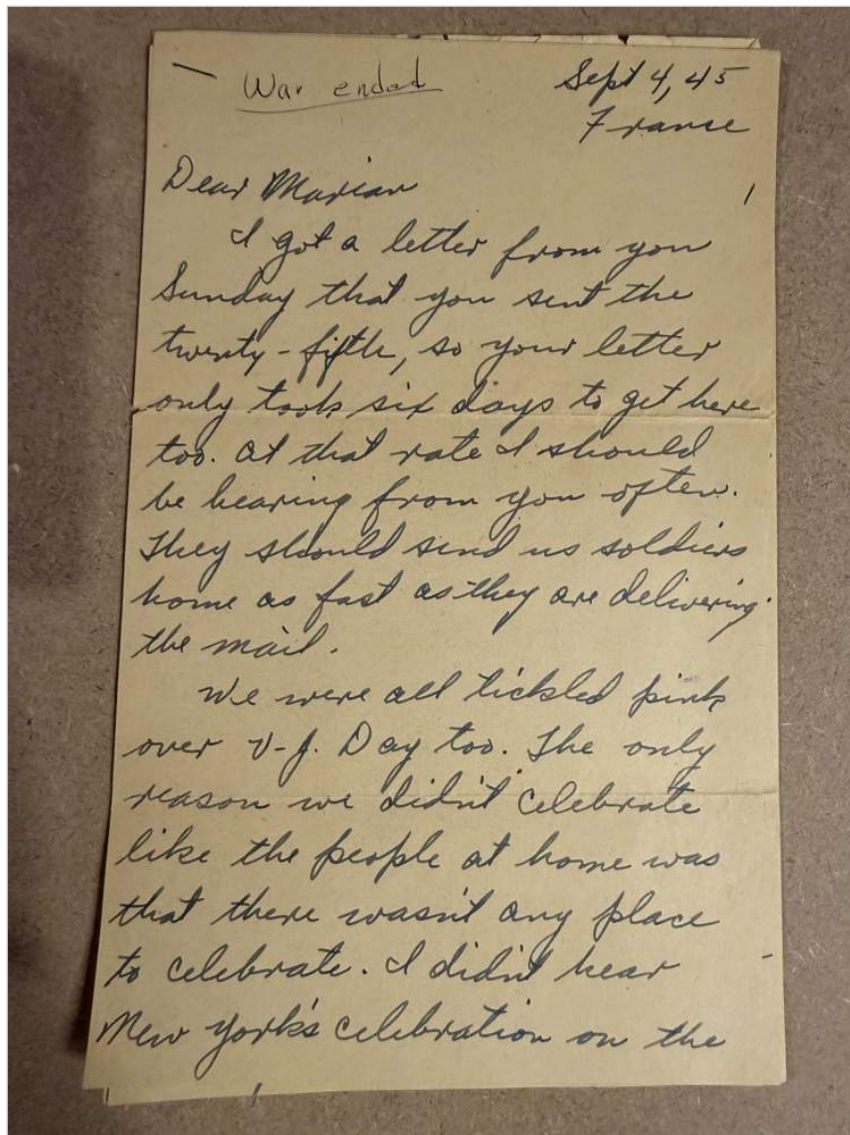 War ended
Sept 4, 45
France
Dear Marian
1
I got a letter from you
Sunday that you sent the
twenty-fifth, so your letter
only took six days to get here
too. At that rate I should
be hearing from you often.
They should send us soldiers
home as fast as they are delivering
the mail.
We were all tickled pink
over V-J. Day too. The only
reason we didn't celebrate
like the people at home was
that there wasn't any place
to celebrate. I didn't hear
New York's celebration on the